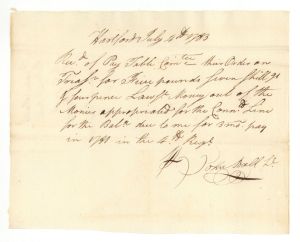 Hartford July 4th 1783
Rec'd of Pay Table Comtee this Order on
Treasr for Five pounds Seven Shillgs
& fourpence Lawfl Money out of the
Monies appropriated for the Connt Line
for the Balce due to me for 3 mo. pay
in 1781 in the 4th Regt
John Ball Lt